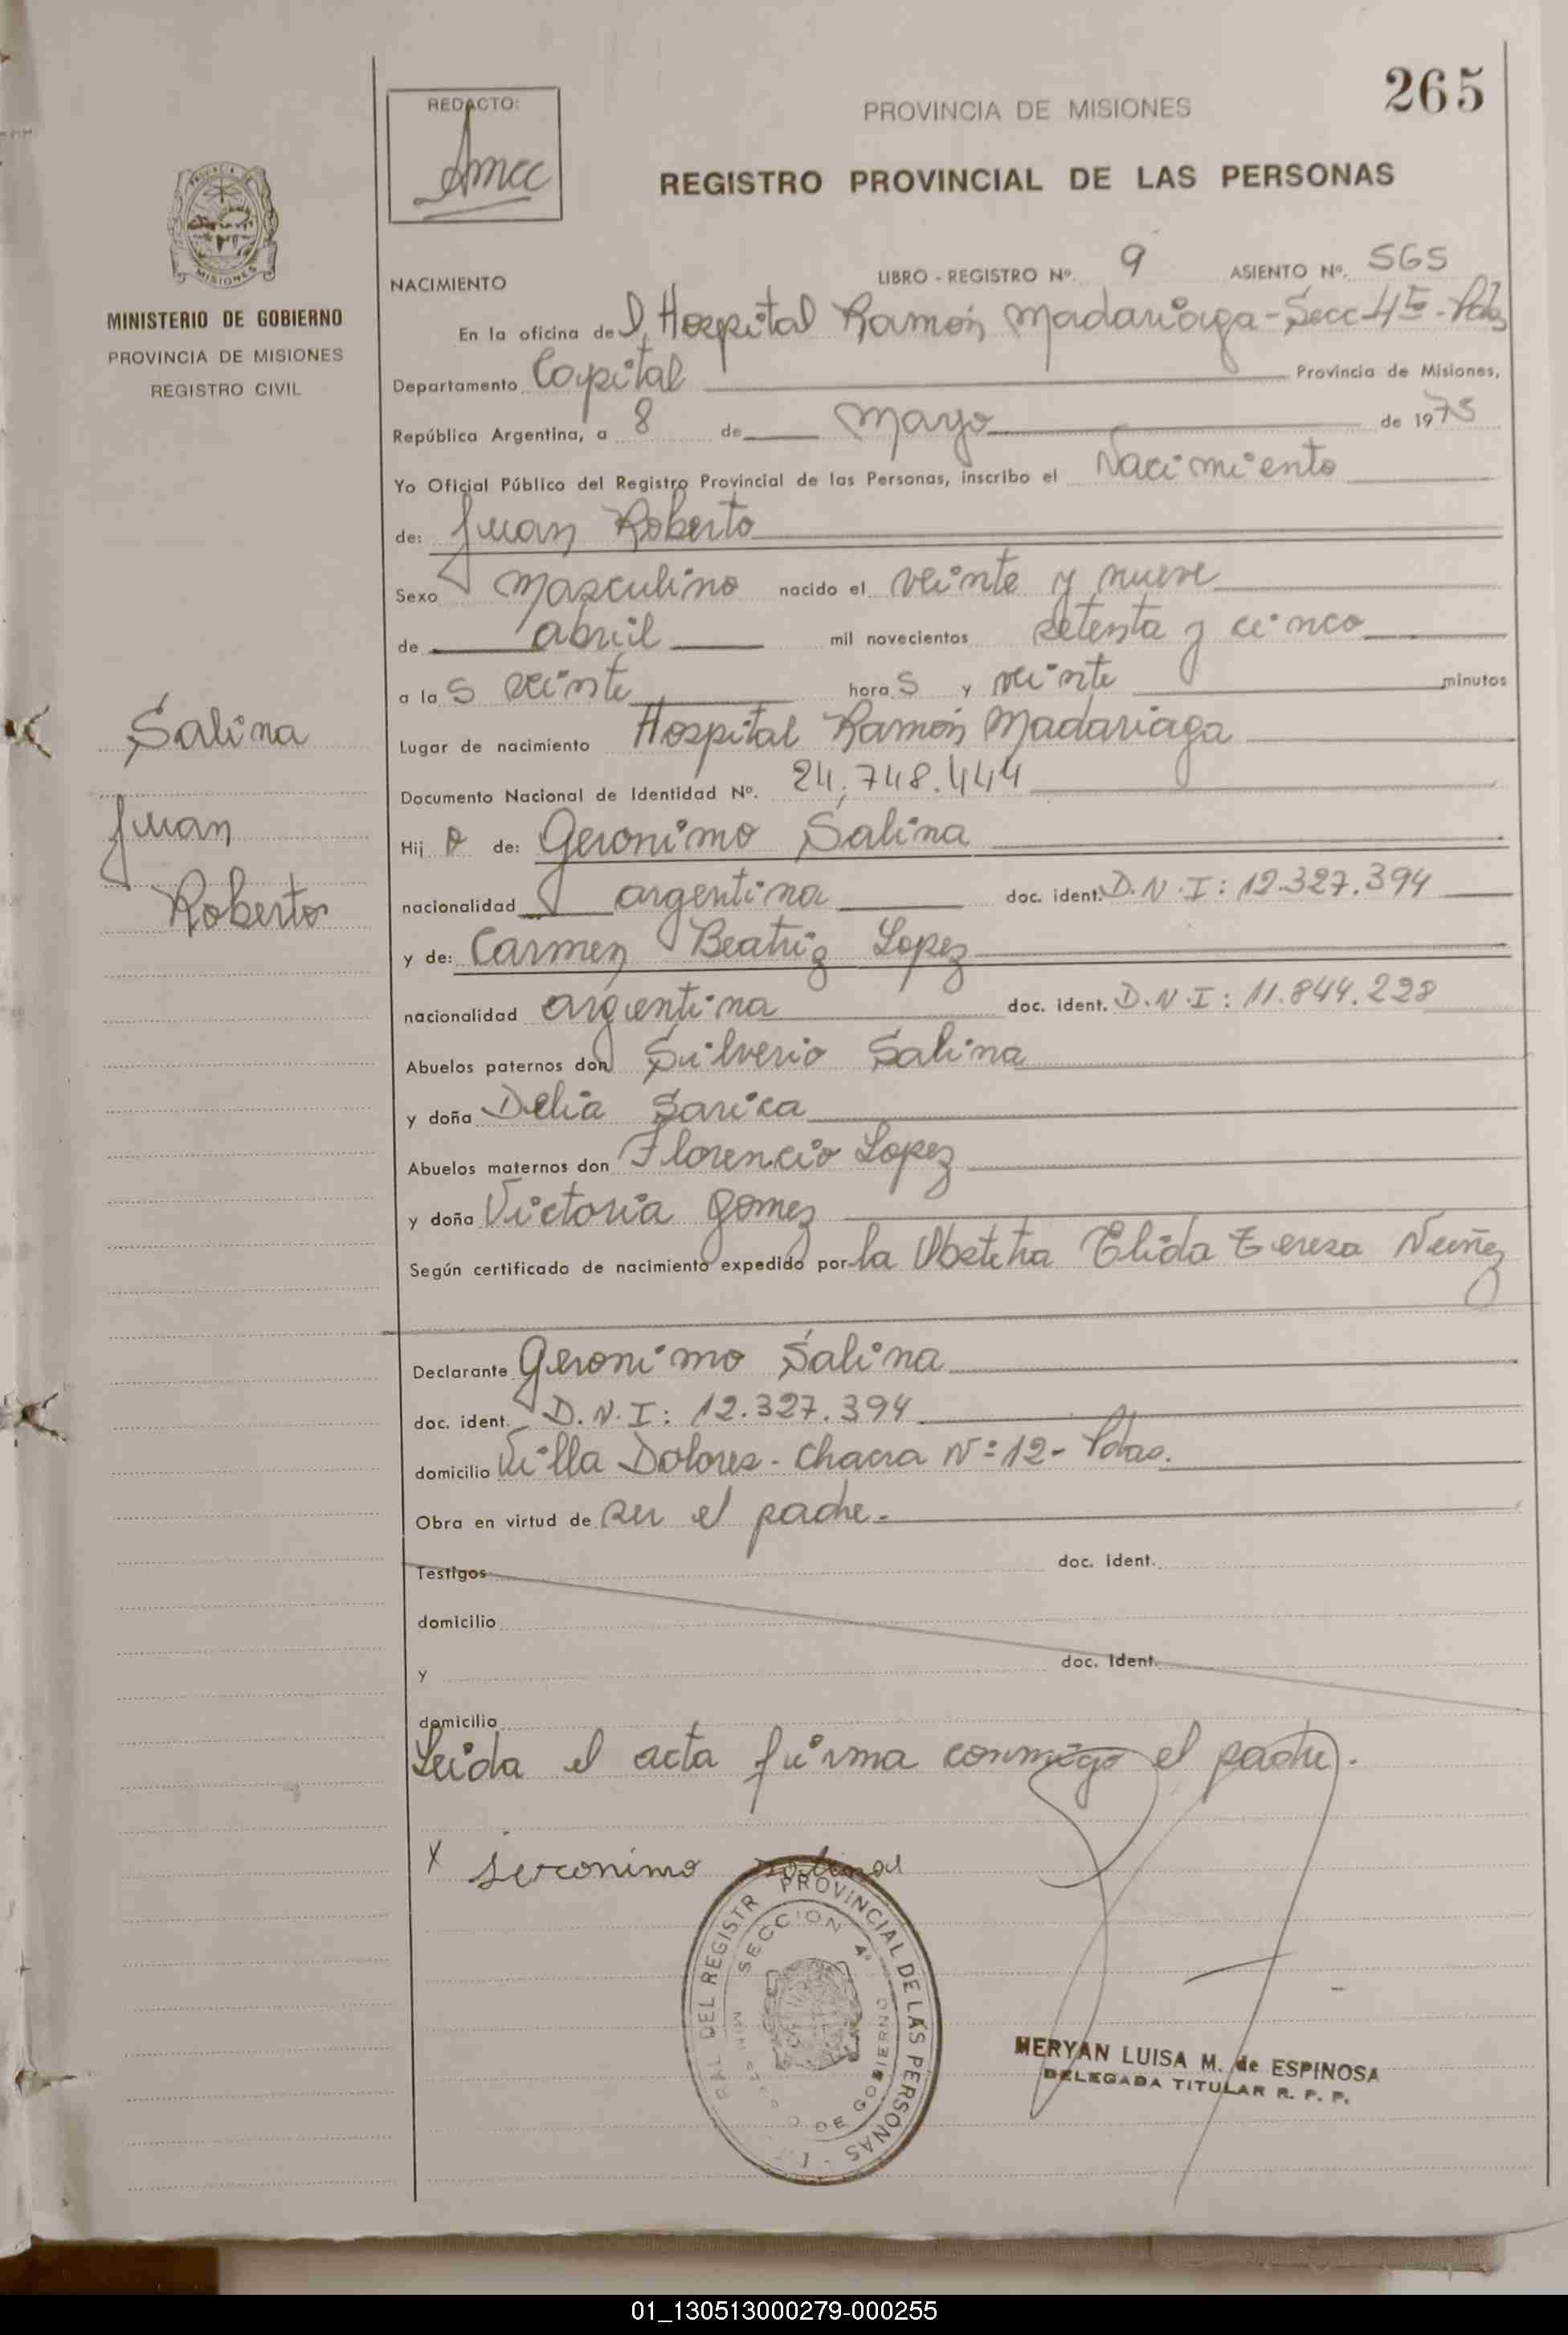 265
REDACTO:
Amcc
PROVINCIA DE MISIONES
REGISTRO PROVINCIAL DE LAS PERSONAS
MISIONES
MINISTERIO DE GOBIERNO
PROVINCIA DE MISIONES
REGISTRO CIVIL
NACIMIENTO LIBRO - REGISTRO Nº. 9 ASIENTO Nº. 565
En la oficina del Hospital Ramón Madariaga - Secc 4ta - Pdas
Departamento Capital Provincia de Misiones,
República Argentina, a 8 de Mayo de 1975
Yo Oficial Público del Registro Provincial de las Personas, inscribo el Nacimiento
de: Juan Roberto
Sexo Masculino nacido el veinte y nueve
de abril mil novecientos setenta y cinco
a las veinte horas y veinte minutos
Salina
Lugar de nacimiento Hospital Ramón Madariaga
Documento Nacional de Identidad Nº. 24.748.444
Juan
Hijo de: Geronimo Salina
Roberto
nacionalidad argentina doc. ident. D.N.I: 12.327.394
y de: Carmen Beatriz Lopez
nacionalidad argentina doc. ident. D.N.I: 11.844.228
Abuelos paternos don Silverio Salina
y doña Delia Sarica
Abuelos maternos don Florencio Lopez
y doña Victoria Gomez
Según certificado de nacimiento expedido por la Obstetra Elida Teresa Nuñez
Declarante Geronimo Salina
doc. ident. D.N.I: 12.327.394
domicilio Villa Dolores - Chacra Nº 12 - Pdas.
Obra en virtud de ser el padre.
Testigos doc. ident.
domicilio
y doc. ident.
domicilio
Leida el acta firma conmigo el padre.
X Jeronimo Salina
REGISTR PROVINCIAL DE LAS PERSONAS
SECCION 4ª
DE GOBIERNO
MERYAN LUISA M. de ESPINOSA
DELEGADA TITULAR R. P. P.
01_130513000279-000255